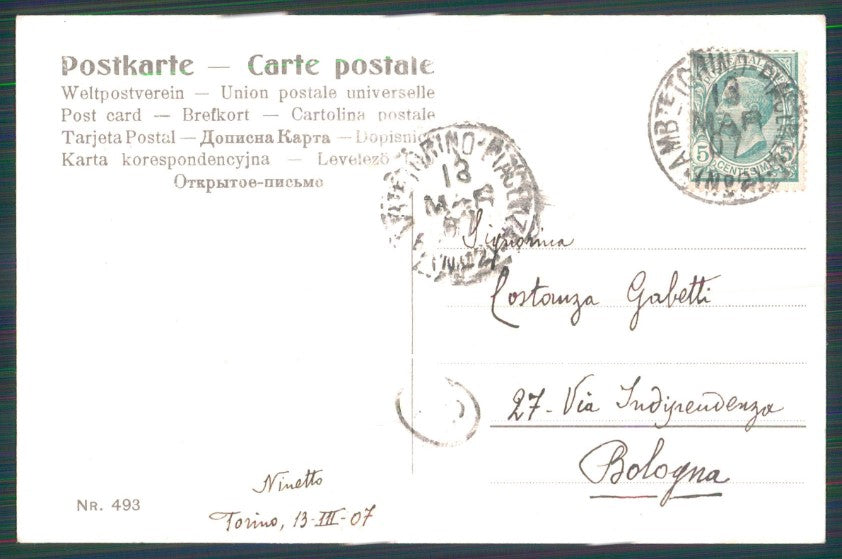 Postkarte — Carte postale
Weltpostverein — Union postale universelle
Post card — Brefkort — Cartolina postale
Tarjeta Postal — Дописна Карта — Dopisnic
Karta korespondencyjna — Levelező
Открытое-письмо
AMB TORINO-PIACENZA
13
MAR
07
5 CENTESIMI 5
TORINO-PIACENZA
13
MAR
07
Signorina
Costanza Gabetti
27- Via Indipendenza
Bologna
Ninetto
Torino, 13-III-07
NR. 493